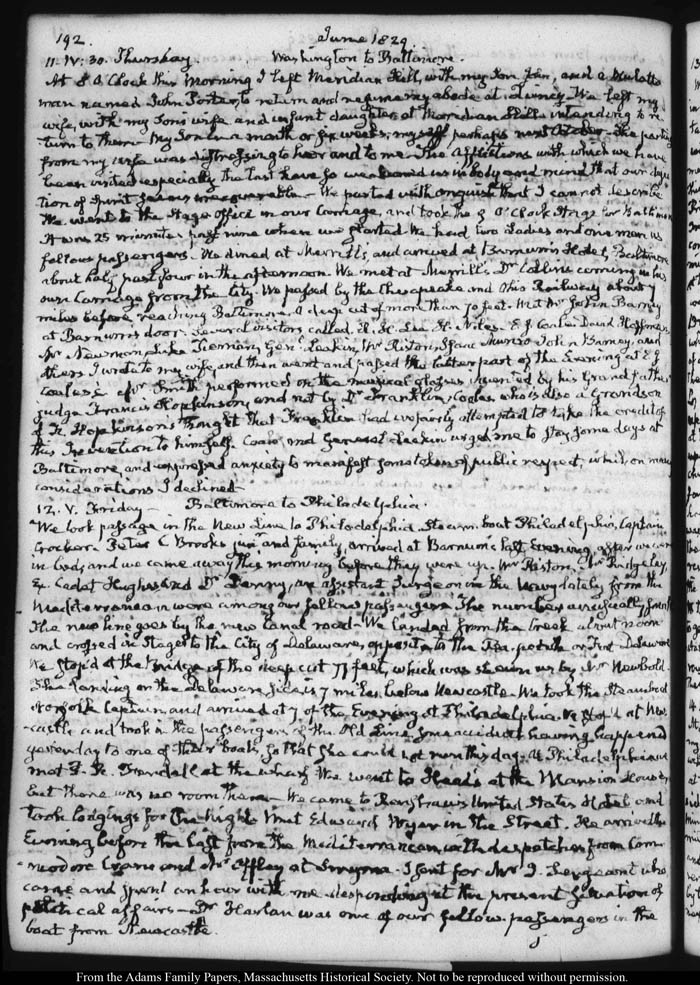 192.
June 1829.
11. IV: 30. Thursday. Washington to Baltimore.
At 8 O'Clock this Morning I left Meridian Hill, with my Son John, and a Mulatto
man named John Porter, to return and resume my abode at Quincy. We left my
wife, with my Son's wife and infant daughters at Meridian Hill intending to re-
turn to them. My Son in a month or six weeks; myself perhaps next October. The parting
from my wife was distressing to her and to me. The afflictions with which we have
been visited especially the last have so weakened us in body and mind that our
tion of Spirit seems irrecoverable. We parted with anguish that I cannot describe.
We went to the Stage Office in our Carriage, and took the 9 O'Clock Stage for Baltimore
It was 25 minutes past nine when we started. We had two Ladies and one man as
fellow passengers. We dined at Merrill's, and arrived at Barnum's Hotel, Baltimore
about half past four in the afternoon. We met at Merrill's Dr. coming in his
own Carriage from the City. We passed by the Chesapeake and Ohio Railway about 7
miles before reaching Baltimore. A deep cut of more than 70 feet. Met Mr. Barney
at Barnum's door. Several visitors called. R. H. Lee, H. Niles. E. J. Coale. David Hoffman,
Mr. Newman, Luke Tiernan, Genl. Leakin, Mr. Riston, Isaac Munro, John Barney, and
others. I wrote to my wife, and then went and passed the latter part of the Evening at E. J.
Coale's. A Mr. Smith performed on the musical glasses invented by his Grandfather
judge Francis Hopkinson, and not by Dr. Franklin. Coale, who is also a Grandson
of Hopkinson's thought that Franklin had unfairly attempted to take the credit of
this Invention to himself. Coale, and General Leakin urged me to stay some days at
Baltimore, and expressed anxiety to manifest some token of public respect; which, on many
considerations I declined.
12. V. Friday. Baltimore to Philadelphia.
We took passage in the New Line to Philadelphia. Steam-boat Philadelphia, Captain
Crocker. Peter C. Brooks junr. and family, arrived at Barnum's last Evening, after we were
in bed; and we came away this morning before they were up. Mr. Riston, Mr. Ridgeley,
Ex. Cadet Hughes and Dr. Denny, an assistant Surgeon in the Navy lately from the
Mediterranean were among our fellow passengers. The number unusually small
The new line goes by the new Canal road. We landed from the Creek about noon
and crossed in Stages to the City of Delaware, opposite to the Pea-patch or Fort Delaware
We stop'd at the bridge of the deep cut 77 feet, which was shewn us by Mr. Newbold.
The Landing on the Delaware side is 7 miles below Newcastle. We took the Steamboat
Norfolk Captain and arrived at 7 of the Evening at Philadelphia. We stop'd at New-
castle and took in the passengers of the Old Line some accident having happened
yesterday to one of their boats, so that she could not run this day. At Philadelphia we
met at the wharf. We went to Head's at the Mansion House,
but there was no room there. We came to Renshaw's United States Hotel and
took lodgings for the night. Met Edward Wyer in the Street. He arrived the
Evening before the last from the Mediterranean, with despatches from Com-
modore Crane and Mr. Offley at Smyrna. I sent for Mr. J. Sergeant who
came and spent an hour with me desponding at the present situation of
political affairs. Dr. Harlan was one of our fellow-passengers in the
boat from Newcastle.
From the Adams Family Papers, Massachusetts Historical Society. Not to be reproduced without permission.